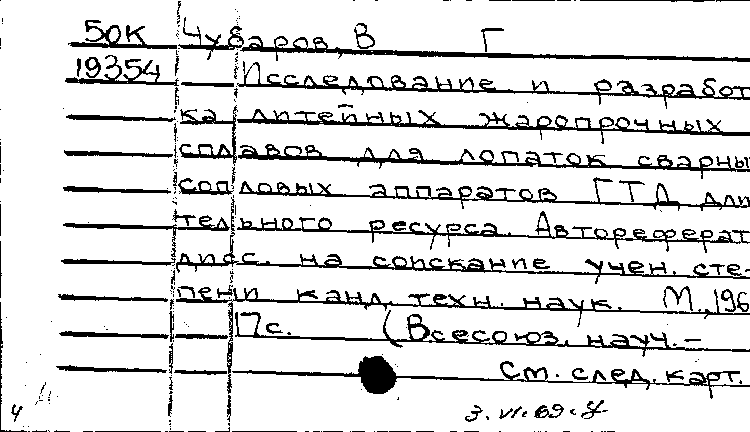 50К Чубаров, В Г
19354 Исследование и разработ
ка литейных жаропрочных
сплавов для лопаток сварны
сопловых аппаратов ГТД дли
тельного ресурса. Автореферат
дисс. на соискание учен. сте-
пени канд. техн. наук. М., 196
17с. (Всесоюз. науч.-
См. след. карт.
4 3.VI.69.